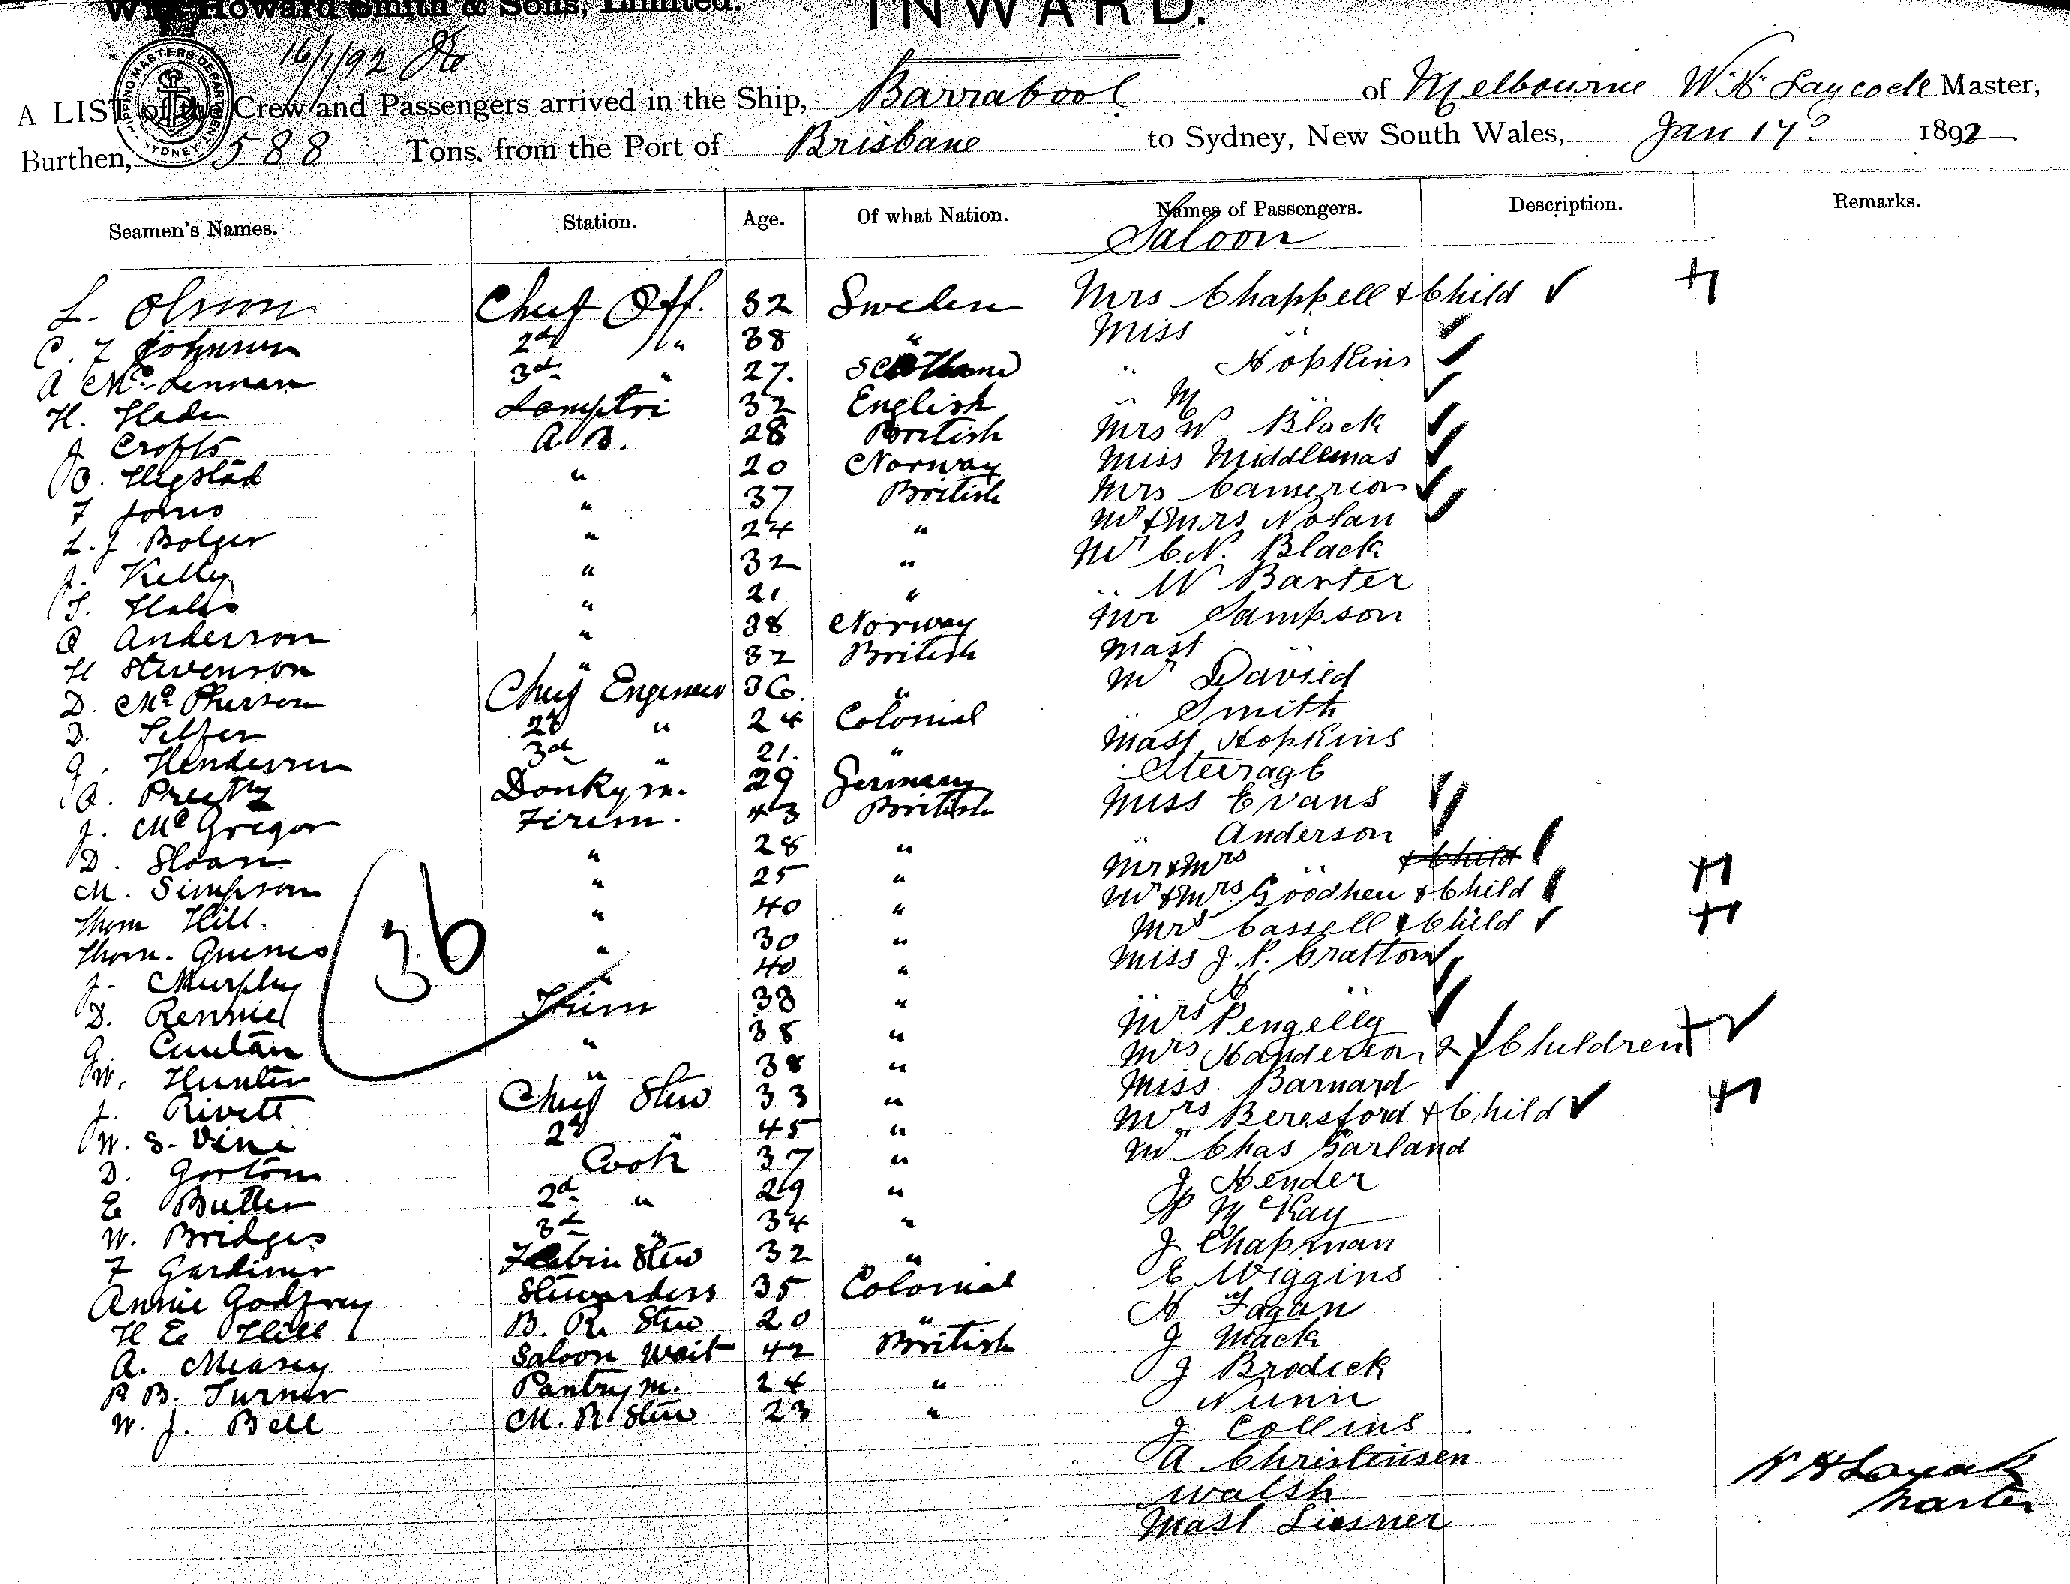 Wm. Howard Smith & Sons, Limited.
INWARD.
16/1/92
A LIST of the Crew and Passengers arrived in the Ship, Barrabool of Melbourne W. H. Laycock Master,
Burthen, 588 Tons. from the Port of Brisbane to Sydney, New South Wales, Jan 17 1892
Seamen's Names. Station. Age. Of what Nation. Names of Passengers. Description. Remarks.
Saloon
L. Olsson Chief Off. 32 Sweden Mrs Chappell & Child ✓
C. F Johnson 2d " 38 " Miss " ✓
A McLennan 3d " 27. Scotland " Hopkins ✓
H. Slade Lamptri 32 English " M " ✓
J Crofts A.B. 28 British Mrs W Black ✓
O. Elgstad " 20 Norway Miss Middlemas ✓
F Jones " 37 British Mrs Camerion ✓
L. J Bolger " 24 " Mr & Mrs Nolan ✓
J. Kelly " 32 " Mr C. N. Black
" 21 " " W Baxter
C Anderson " 38 Norway Mr Sampson
H Stevenson " 32 British Mast "
D. McPherson Chief Engineer 36. " Mr David
D. 2d " 24 Colonial " Smith
G. Henderson 3d " 21. " Mast Hopkins
Steerage
A. Donkym. 29 Germany Miss Evans ✓
J. McGregor Firem. 43 British " Anderson ✓
D. Sloan " 28 " Mr & Mrs " & Child ✓
M. Simpson " 25 " Mr & Mrs Goodhew & Child
Thom Hill. " 40 " Mrs Cassell & Child ✓
Thom. " 30 " Miss J. P. Gratton ✓
J. Murphy " 40 " " "
D. Rennie 33 " Mrs Pengelly ✓
36
G. " 38 " Mrs Handerson & Children ✓
W. Hunter " 38 " Miss Barnard
J. Rivett Chief Stew 33 " Mrs Beresford & Child ✓
W. S. Vine 2d " 45 " Mr Chas Garland
D. Gorton Cook 37 " J Hender
E Butler 2d " 29 " P McKay
W. Bridges 3d " 34 " J Chapman
F Gardiner Stew 32 " E Wiggins
Annie Godfrey Stewardess 35 Colonial H Fagan
H E Hill B. R. Stew 20 " J Mack
A. Measey Saloon Wait 42 British J Brodick
P B. Turner Pantrym. 24 " Nunn
W. J. Bell M. R Stew 23 " J Collins
A Christensen
Walsh
Mast Liesner
W H Laycock
Master